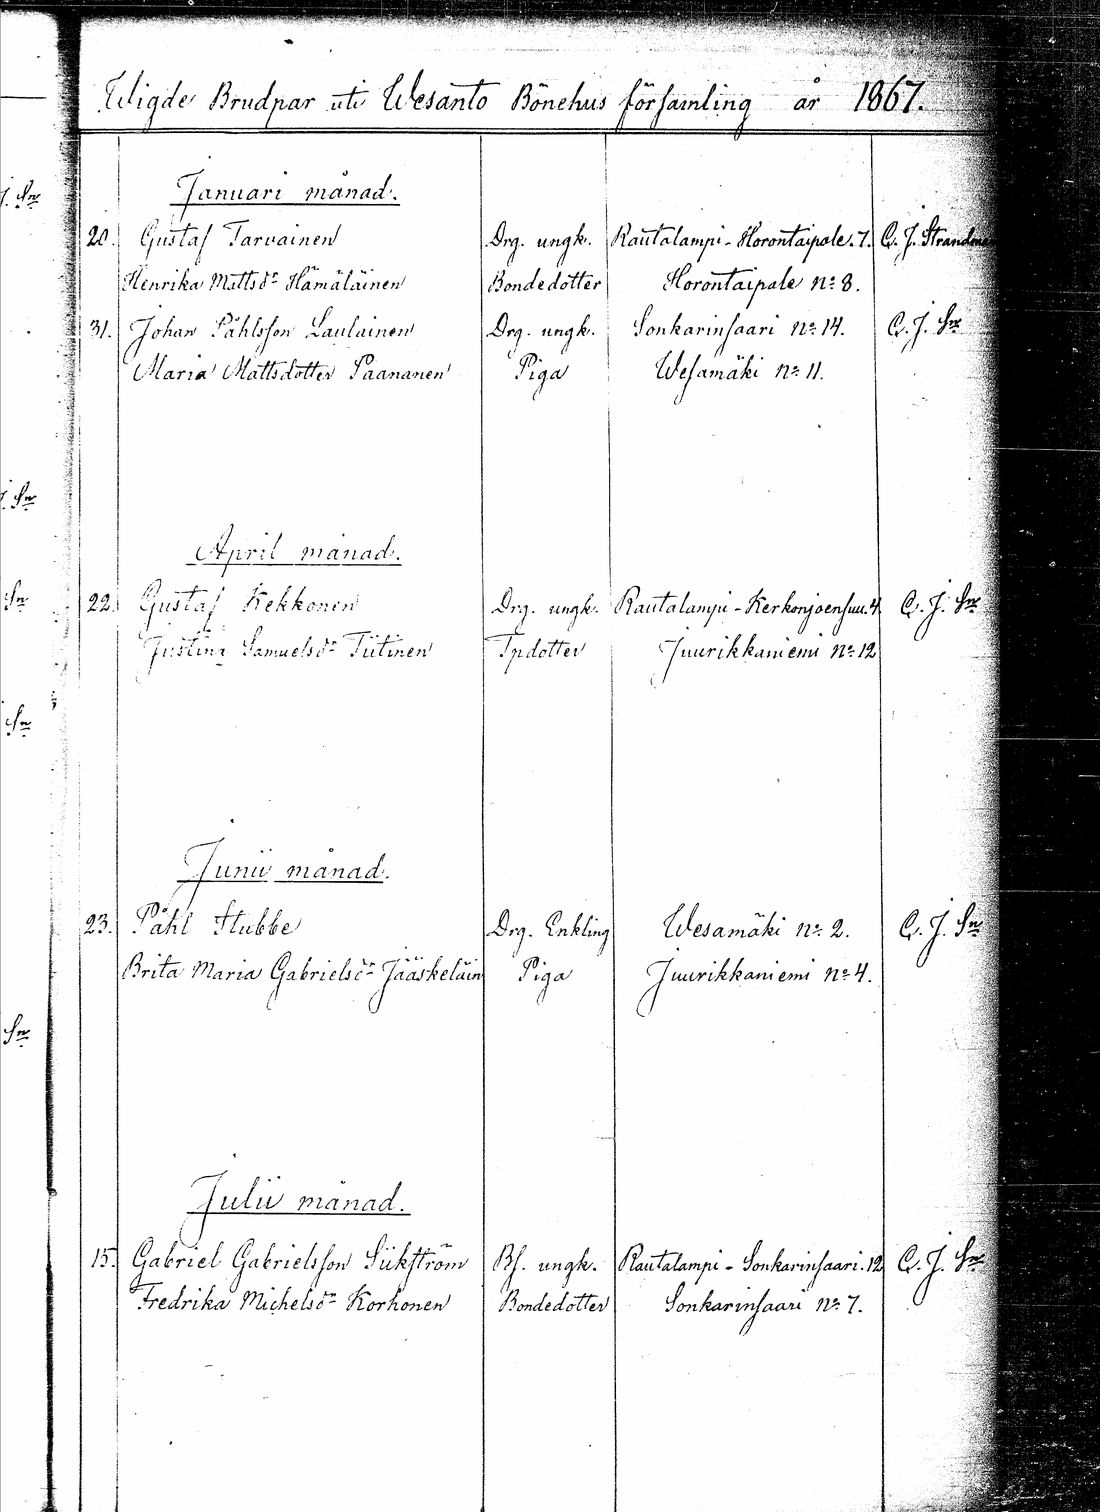 Wigde Brudpar uti Wesanto Bönehus församling år 1867.
Januari månad.
20. Gustaf Tarvainen Drg. ungk. Rautalampi - Horontaipale. 7. C. J. Strandman
Henrika Mattsdr Hämäläinen Bondedotter Horontaipale No 8.
31. Johan Påhlsson Laulainen Drg. ungk. Sonkarinsaari No 14. C. J. Sn
Maria Mattsdotter Paananen Piga Wesamäki No 11.
April månad.
22. Gustaf Kekkonen Drg. ungk. Rautalampi - Kerkonjoensuu. 4. C. J. Sn
Justina Samuelsdr Tiitinen Tpdotter Juurikkaniemi No 12
Junii månad.
23. Påhl Stubbe Drg. Enkling Wesamäki No 2. C. J. Sn
Brita Maria Gabrielsdr Jääskeläin Piga Juurikkaniemi No 4.
Julii månad.
15. Gabriel Gabrielsson Siikström Bs. ungk. Rautalampi - Sonkarinsaari. 12 C. J. Sn
Fredrika Michelsdr Korhonen Bondedotter Sonkarinsaari No 7.